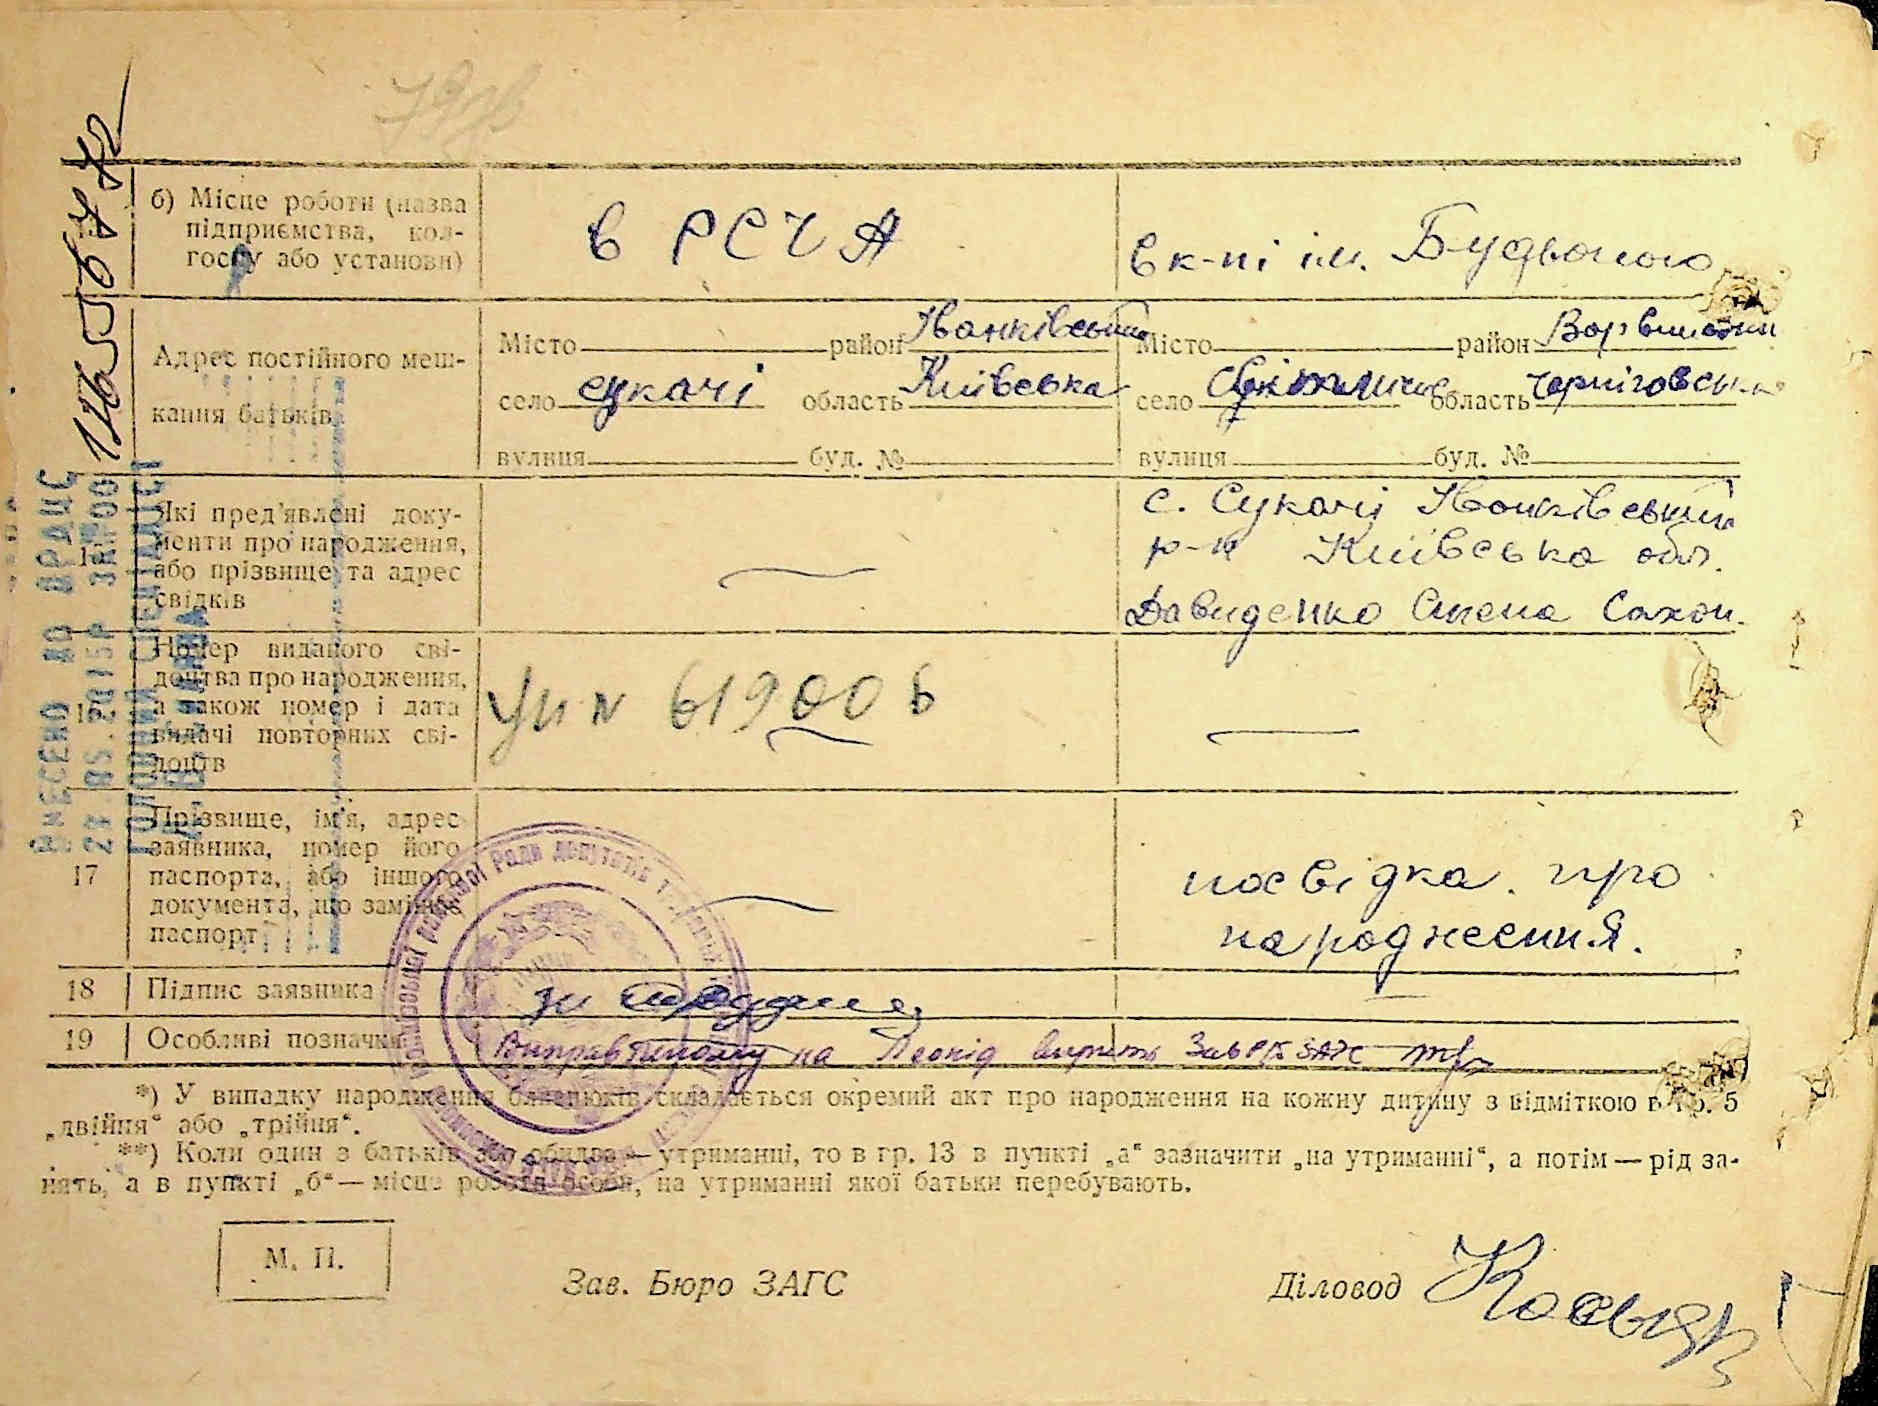 б) Місце роботи (назва
підприємства, кол-
госпу або установи)
в РСЧА
в к-пі ім. Будьоного
Адрес постійного меш-
кання батьків
Місто район Іванківський
село Сукачі область Київська
вулиця буд. №
Місто район
село область Чернігівська
вулиця буд. №
Які пред'явлені доку-
менти про народження,
або прізвище та адрес
свідків
с. Сукачі Іванківський
р-н Київська обл.
Давиденко
Номер виданого сві-
доцтва про народження,
а також номер і дата
видачі повторних сві-
доцтв
619006
17
Прізвище, ім'я, адрес
заявника, номер його
паспорта, або іншого
документа, що заміняє
паспорт
посвідка про
народження.
18 Підпис заявника
19 Особливі позначки
на Леонід вірить Зав РК ЗАГС
*) У випадку народження близнюків складається окремий акт про народження на кожну дитину з відміткою в гр. 5
„двійня“ або „трійня“.
**) Коли один з батьків або обидва — утриманці, то в гр. 13 в пункті „а“ зазначити „на утриманні“, а потім — рід за-
нять, а в пункті „б“ — місце роботи особи, на утриманні якої батьки перебувають.
М. П.
Зав. Бюро ЗАГС
Діловод
ВНЕСЕНО ДО ДРАЦС
ГОЛОВНИЙ СПЕЦІАЛІСТ